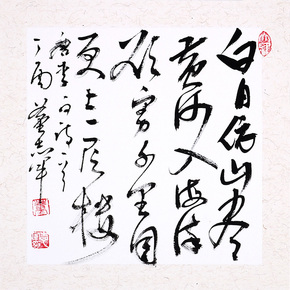 白日依山尽
黄河入海流
欲穷千里目
更上一层楼
诗一首
丁酉